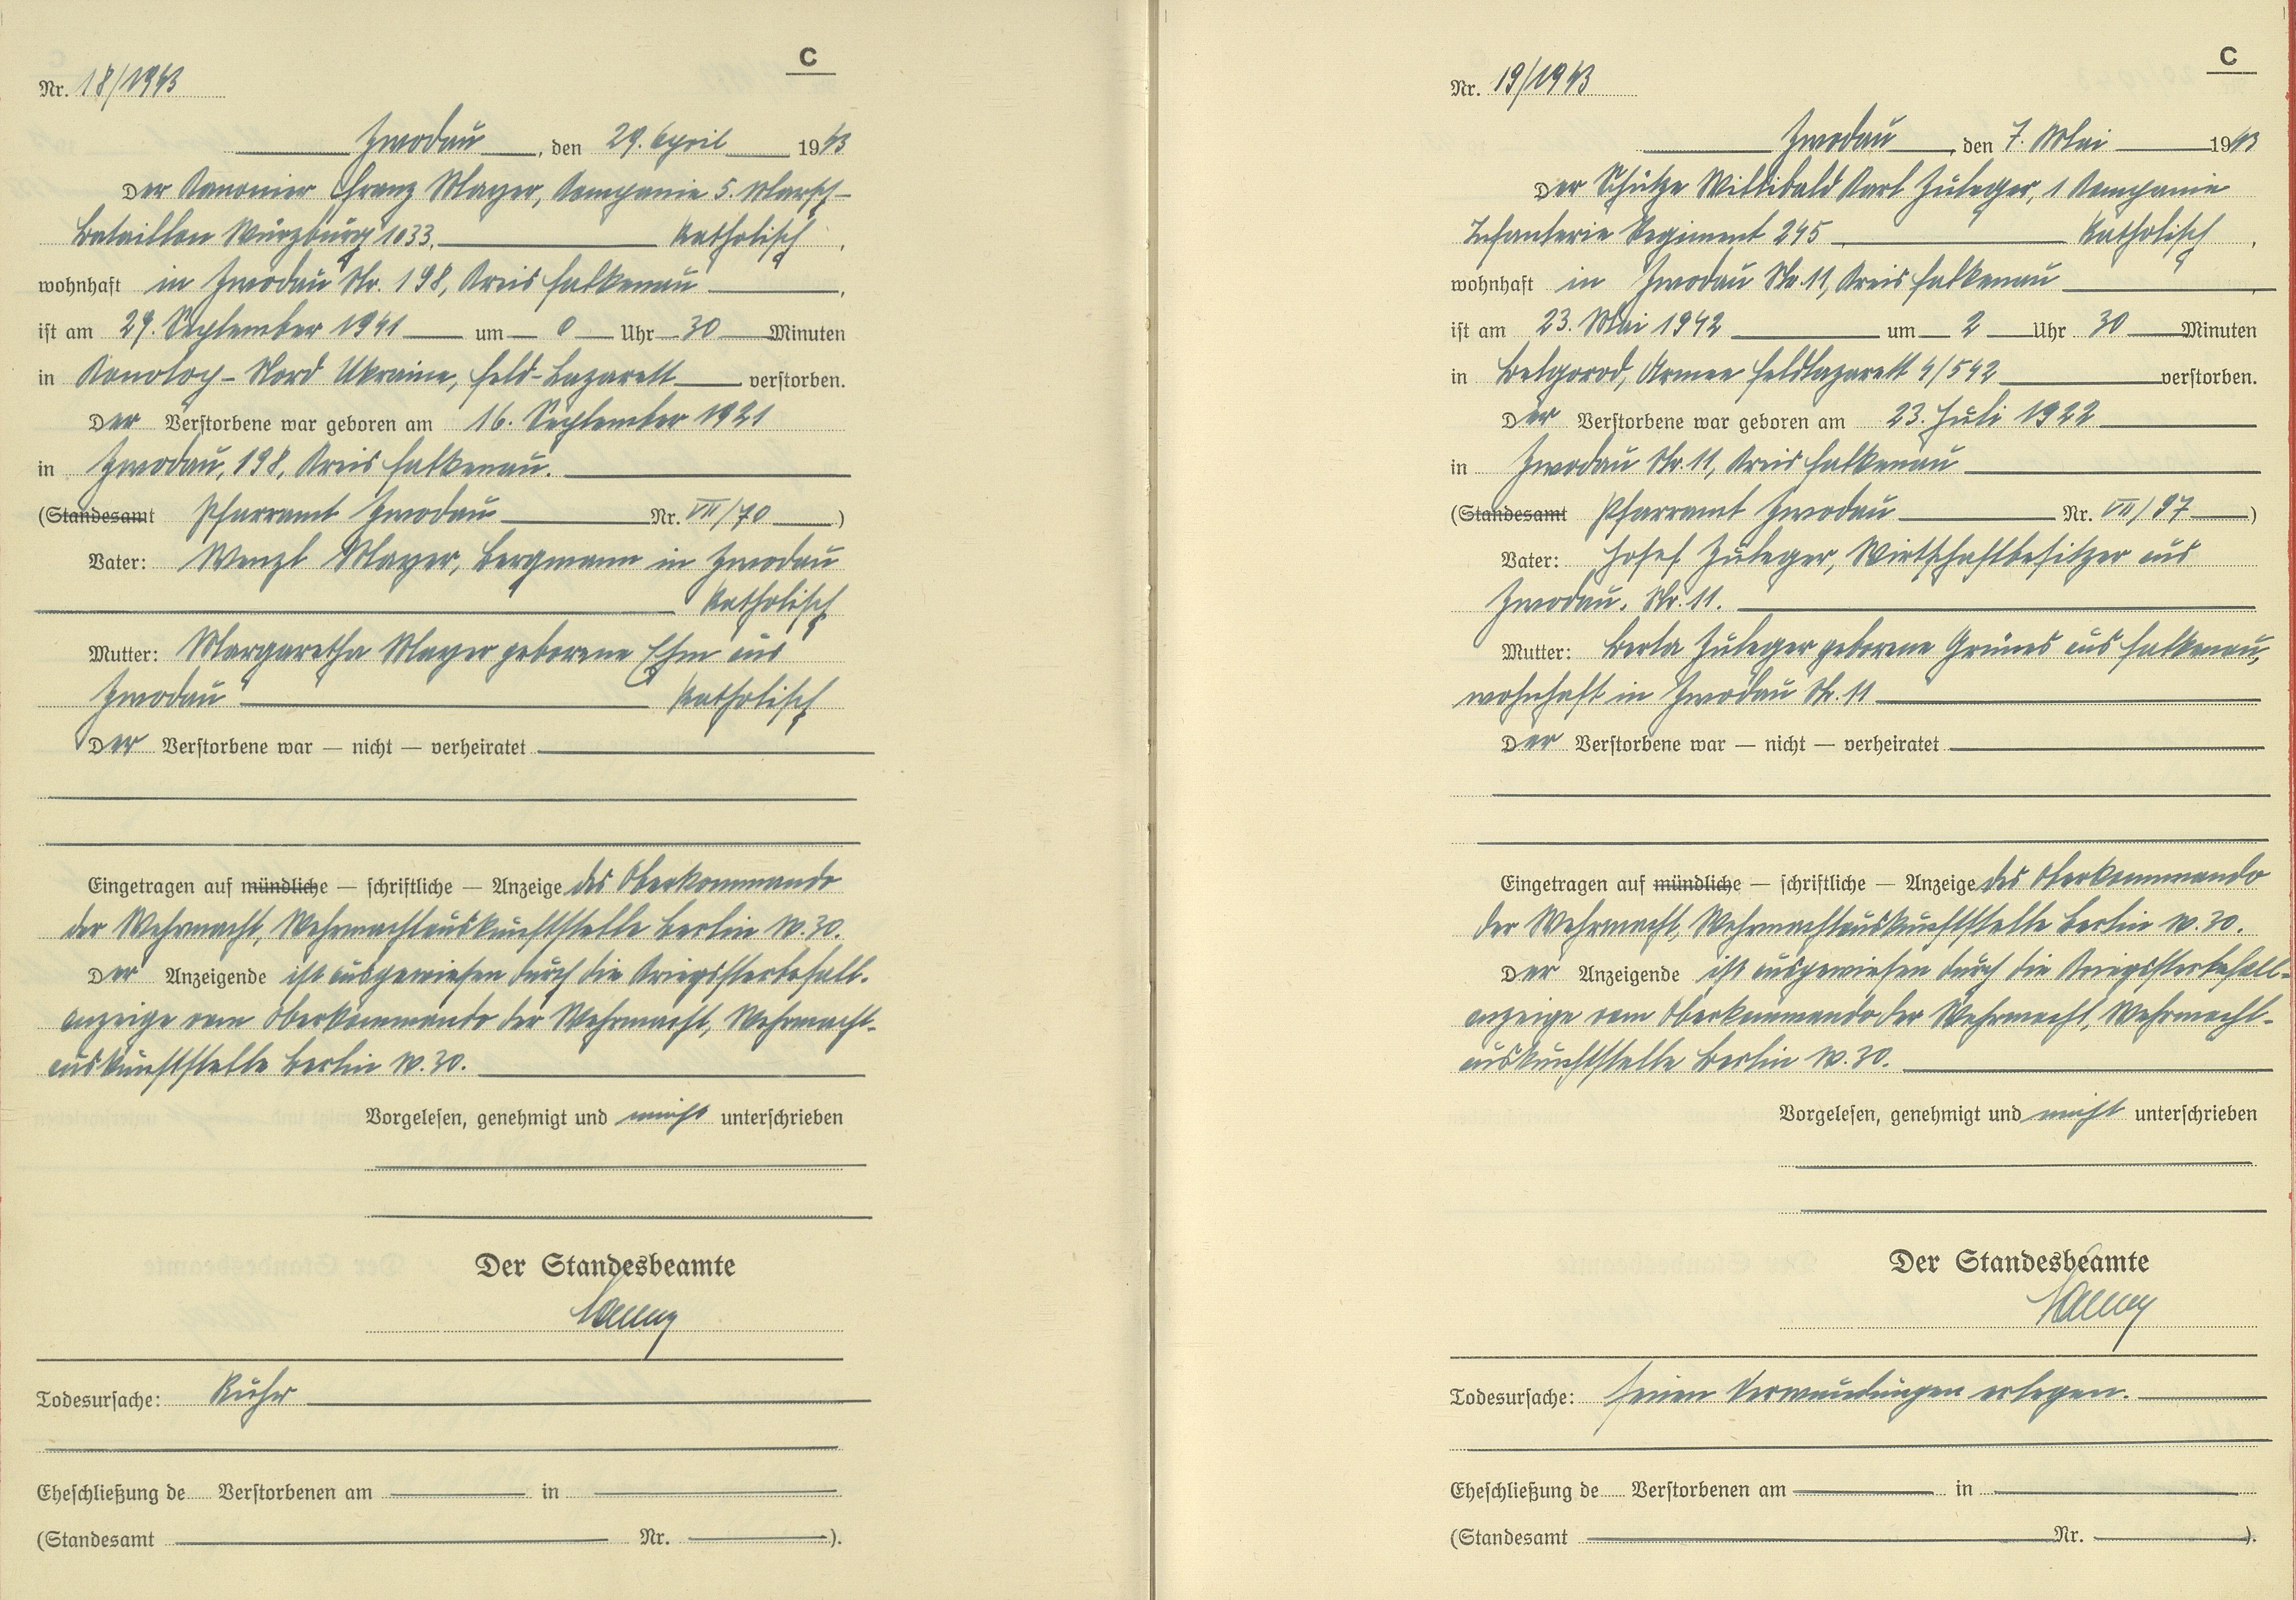 C
Nr. 18/1943
Zwodau, den 29. April 1943
Der Kanonier Franz Mayer, Kompanie 5. Marsch-
Bataillon Würzburg 1033, katholisch,
wohnhaft in Zwodau Nr. 198, Kreis Falkenau,
ist am 29. September 1941 um 0 Uhr 30 Minuten
in Konotop-Nord Ukraine, Feld-Lazarett verstorben.
Der Verstorbene war geboren am 16. September 1921
in Zwodau, 198, Kreis Falkenau.
(Standesamt Pfarramt Zwodau Nr. VII/70)
Vater: Wenzl Mayer, Bergmann in Zwodau
katholisch
Mutter: Margaretha Mayer geborene Ehm aus
Zwodau katholisch
Der Verstorbene war — nicht — verheiratet
Eingetragen auf mündliche — schriftliche — Anzeige des Oberkommando
der Wehrmacht, Wehrmachtauskunftstelle Berlin W. 30.
Der Anzeigende ist ausgewiesen durch die Kriegssterbefall-
anzeige vom Oberkommando der Wehrmacht, Wehrmacht-
auskunftstelle Berlin W. 30.
Vorgelesen, genehmigt und nicht unterschrieben
Der Standesbeamte
Todesursache: Ruhr
Eheschließung de Verstorbenen am in
(Standesamt Nr. ).
C
Nr. 19/1943
Zwodau, den 7. Mai 1943
Der Schütze Willibald Karl Zuleger, 1 Kompanie
Infanterie Regiment 245 katholisch,
wohnhaft in Zwodau Nr. 11, Kreis Falkenau
ist am 23. Mai 1942 um 2 Uhr 30 Minuten
in Belgorod, Armee Feldlazarett 4/542 verstorben.
Der Verstorbene war geboren am 23. Juli 1922
in Zwodau Nr. 11, Kreis Falkenau
(Standesamt Pfarramt Zwodau Nr. VII/97)
Vater: Josef Zuleger, Wirtschaftbesitzer aus
Zwodau, Nr. 11.
Mutter: Berta Zuleger geborene Grünes aus Falkenau,
wohnhaft in Zwodau Nr. 11
Der Verstorbene war — nicht — verheiratet
Eingetragen auf mündliche — schriftliche — Anzeige des Oberkommando
der Wehrmacht, Wehrmachtauskunftstelle Berlin W. 30.
Der Anzeigende ist ausgewiesen durch die Kriegssterbefall-
anzeige vom Oberkommando der Wehrmacht, Wehrmacht-
auskunftstelle Berlin W. 30.
Vorgelesen, genehmigt und nicht unterschrieben
Der Standesbeamte
Todesursache: seinen Verwundungen erlegen.
Eheschließung de Verstorbenen am in
(Standesamt Nr. ).